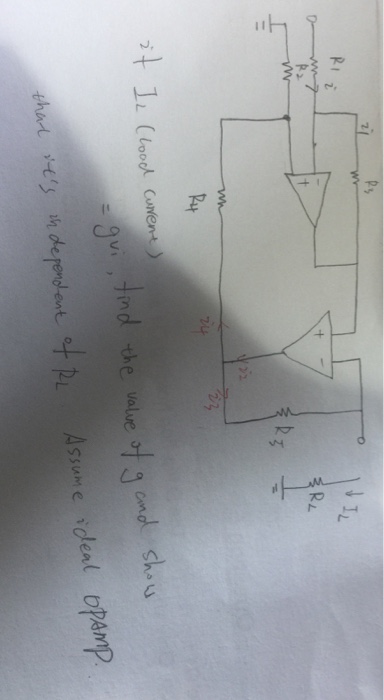 R1
i
R2
i
R3
R4
i4
i2
i3
R5
IL
RL
if IL (load current)
= gvi, find the value of g and show
that it's independent of RL
Assume ideal OPAMP.